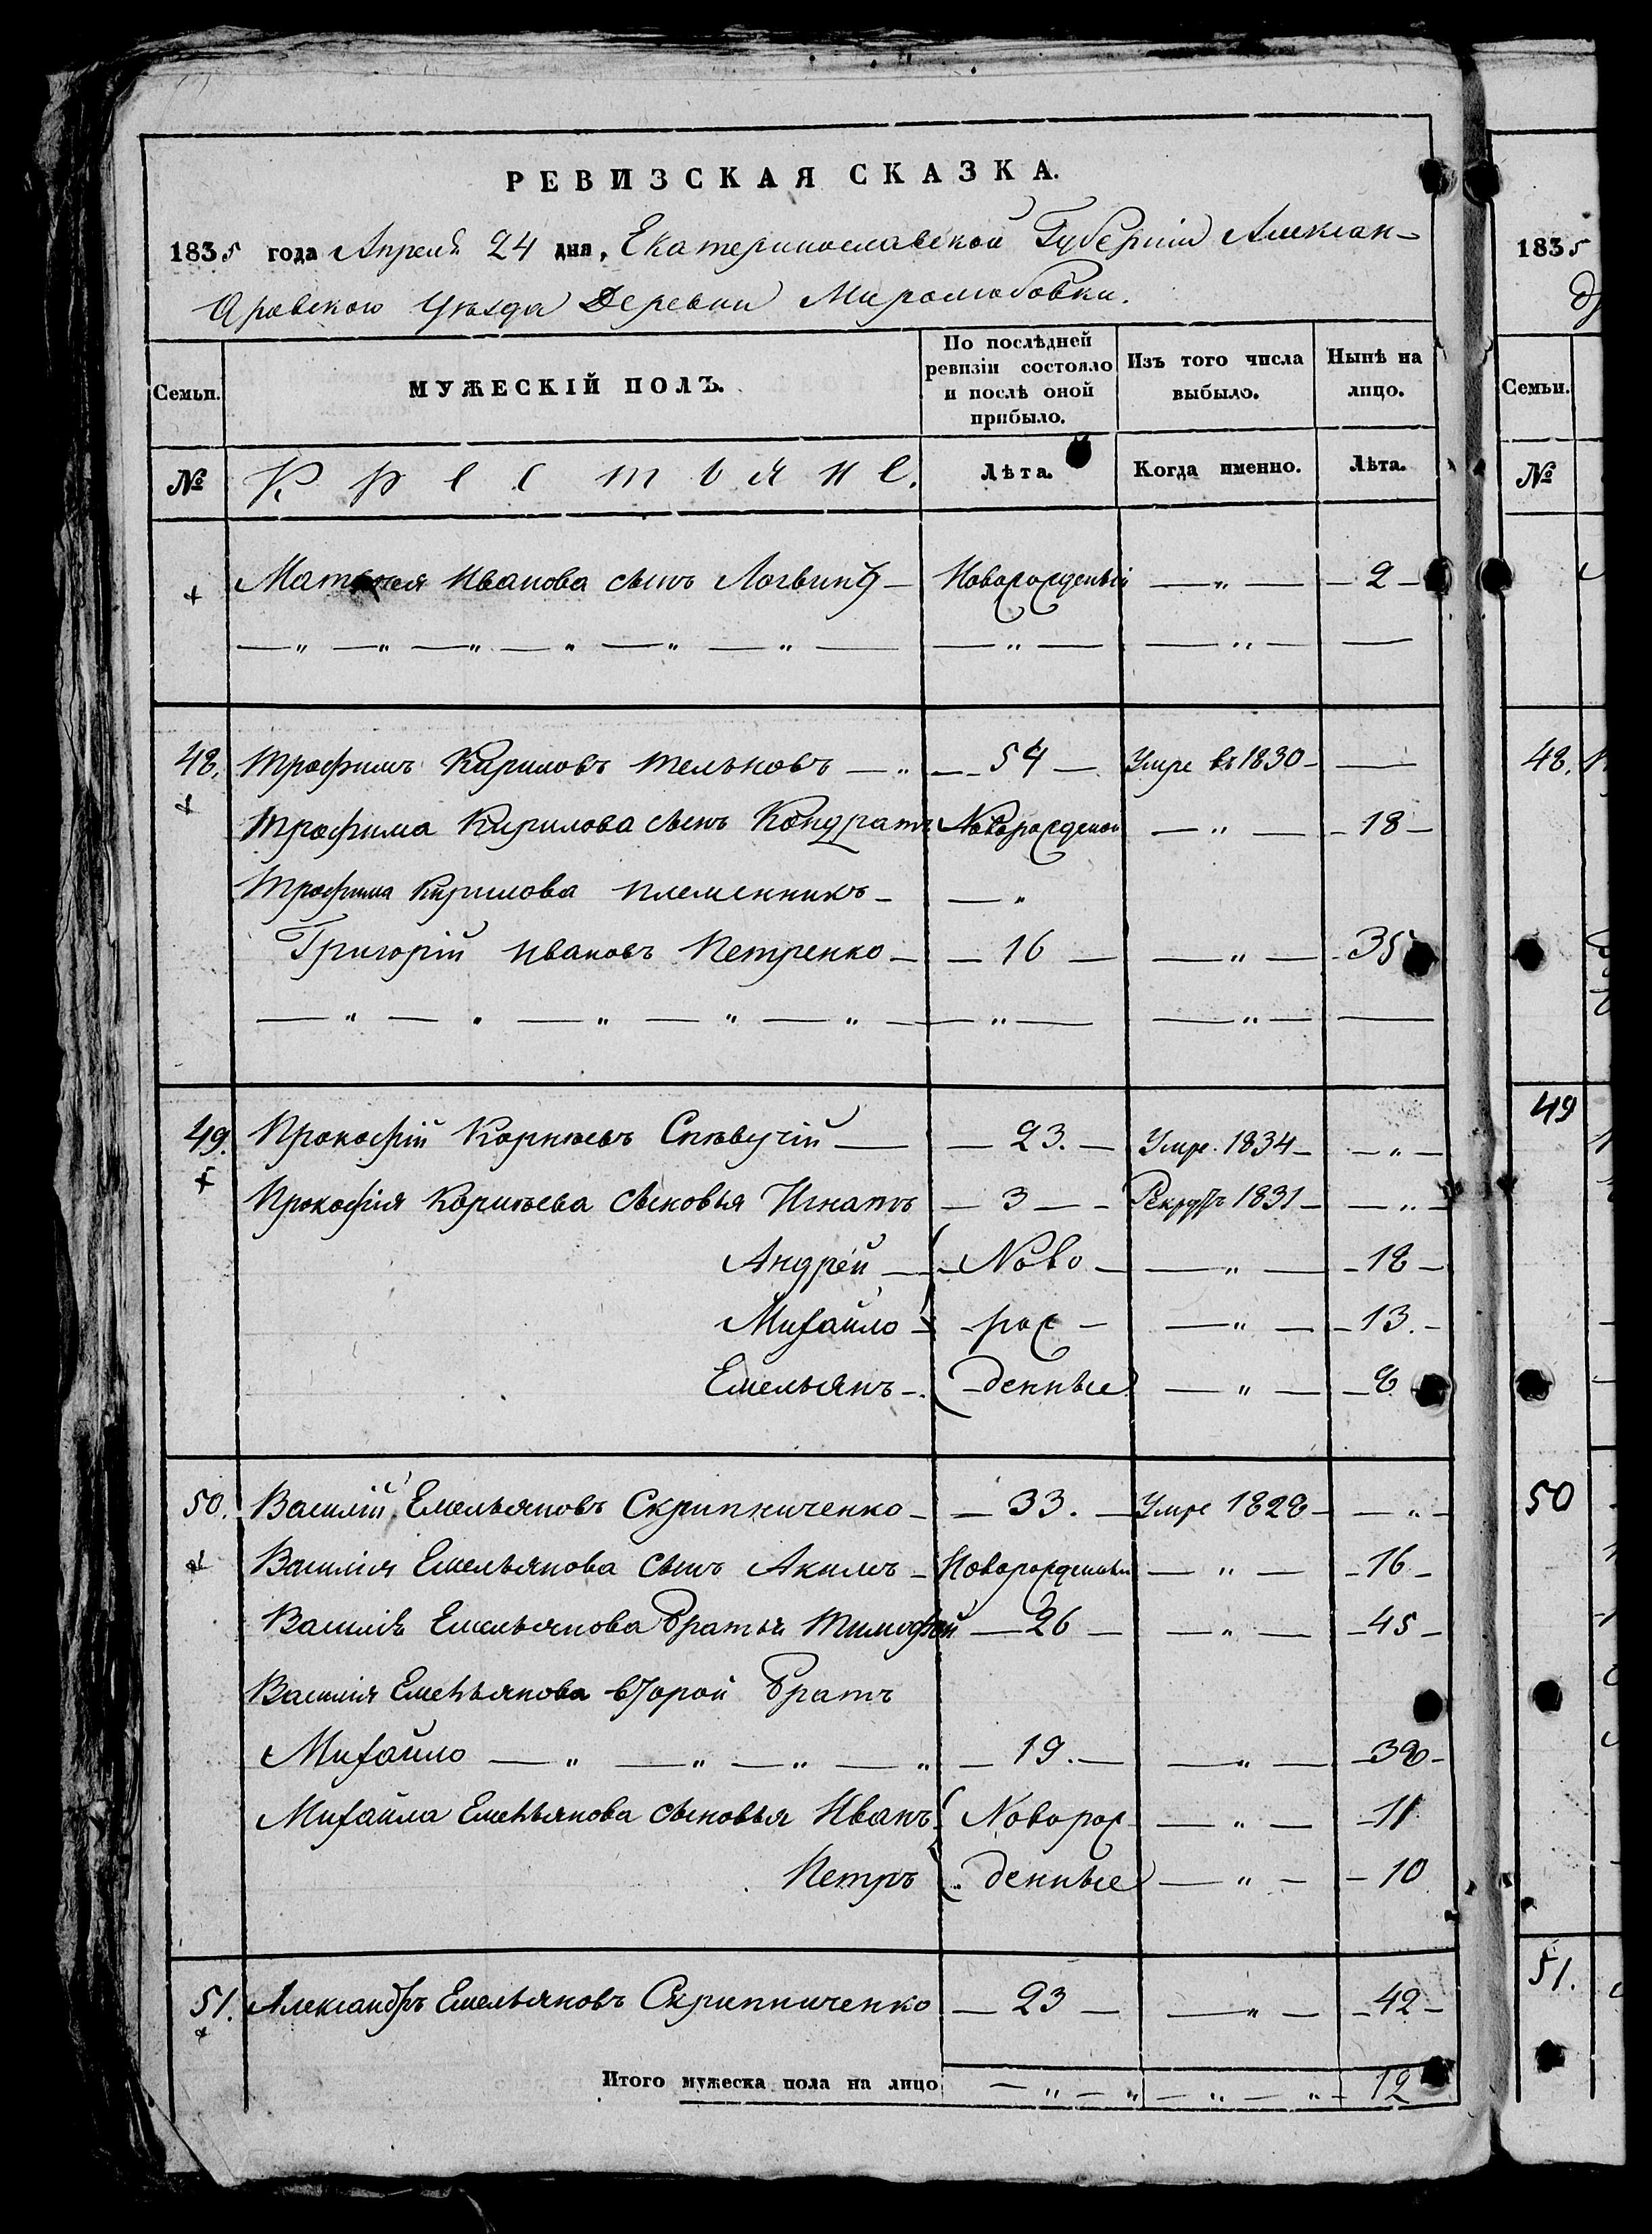 РЕВИЗСКАЯ СКАЗКА.
1835 года Апреля 24 дня, Екатеринославской Губернии Алексан-
дровского Уѣзда Деревни Миролюбовки.
Семьи. МУЖЕСКІЙ ПОЛЪ. По послѣдней ревизіи состояло и послѣ оной прибыло. Изъ того числа выбыло. Нынѣ на лицо.
№ Крестьяне. Лѣта. Когда именно. Лѣта.
Иванова сынъ Логвинъ — Новорожденый — „ — 2 —
48. Трофимъ Кириловъ Тельновъ — „ — 54 — Умре въ 1830 — —
Трофима Кирилова сынъ Кондратъ Новорожденой — „ — 18 —
Трофима Кирилова племенникъ — — „
Григорій Ивановъ Петренко — 16 — — „ — 35
49. Прокофій Корнѣевъ Спѣвучій — 23. — Умре. 1834 — — „ —
Прокофія Корнѣева сыновья Игнатъ — 3 — Рекрутъ 1831 — — „ —
Андрей — Ново — — „ — 18 —
Михайло — рож — — „ — 13. —
Емельянъ — денные — „ — 8
50. Василій Емельяновъ Скрипниченко — 33. — Умре 1828 — — „ —
Василія Емельянова сынъ Акимъ — Новорожденый — „ — 16 —
Василія Емельянова братья Тимофей — 26 — — „ — 45 —
Василія Емельянова второй братъ
Михайло — „ — „ — „ — „ — 19. — — „ — 38 —
Михайла Емельянова сыновья Иванъ Новорож — „ — 11
Петръ денные — „ — 10
51. Александръ Емельяновъ Скрипниченко — 23 — — „ — 42 —
Итого мужеска пола на лицо — „ — „ — „ — „ — 12
1835
Семьи.
№
48.
49
50
51.